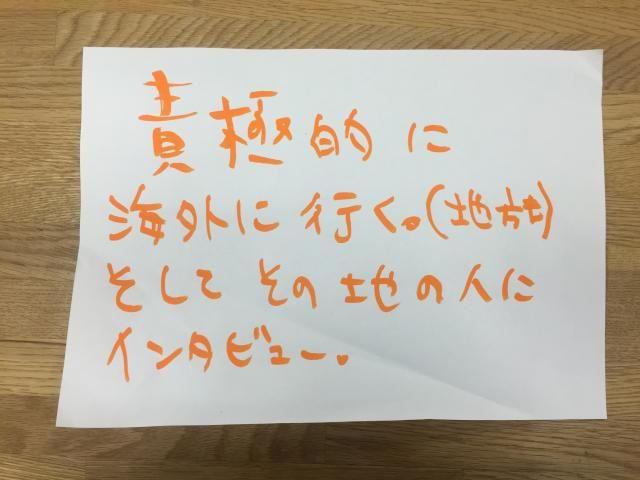 責極的に
海外に行く。(地方も)
そしてその地の人に
インタビュー。